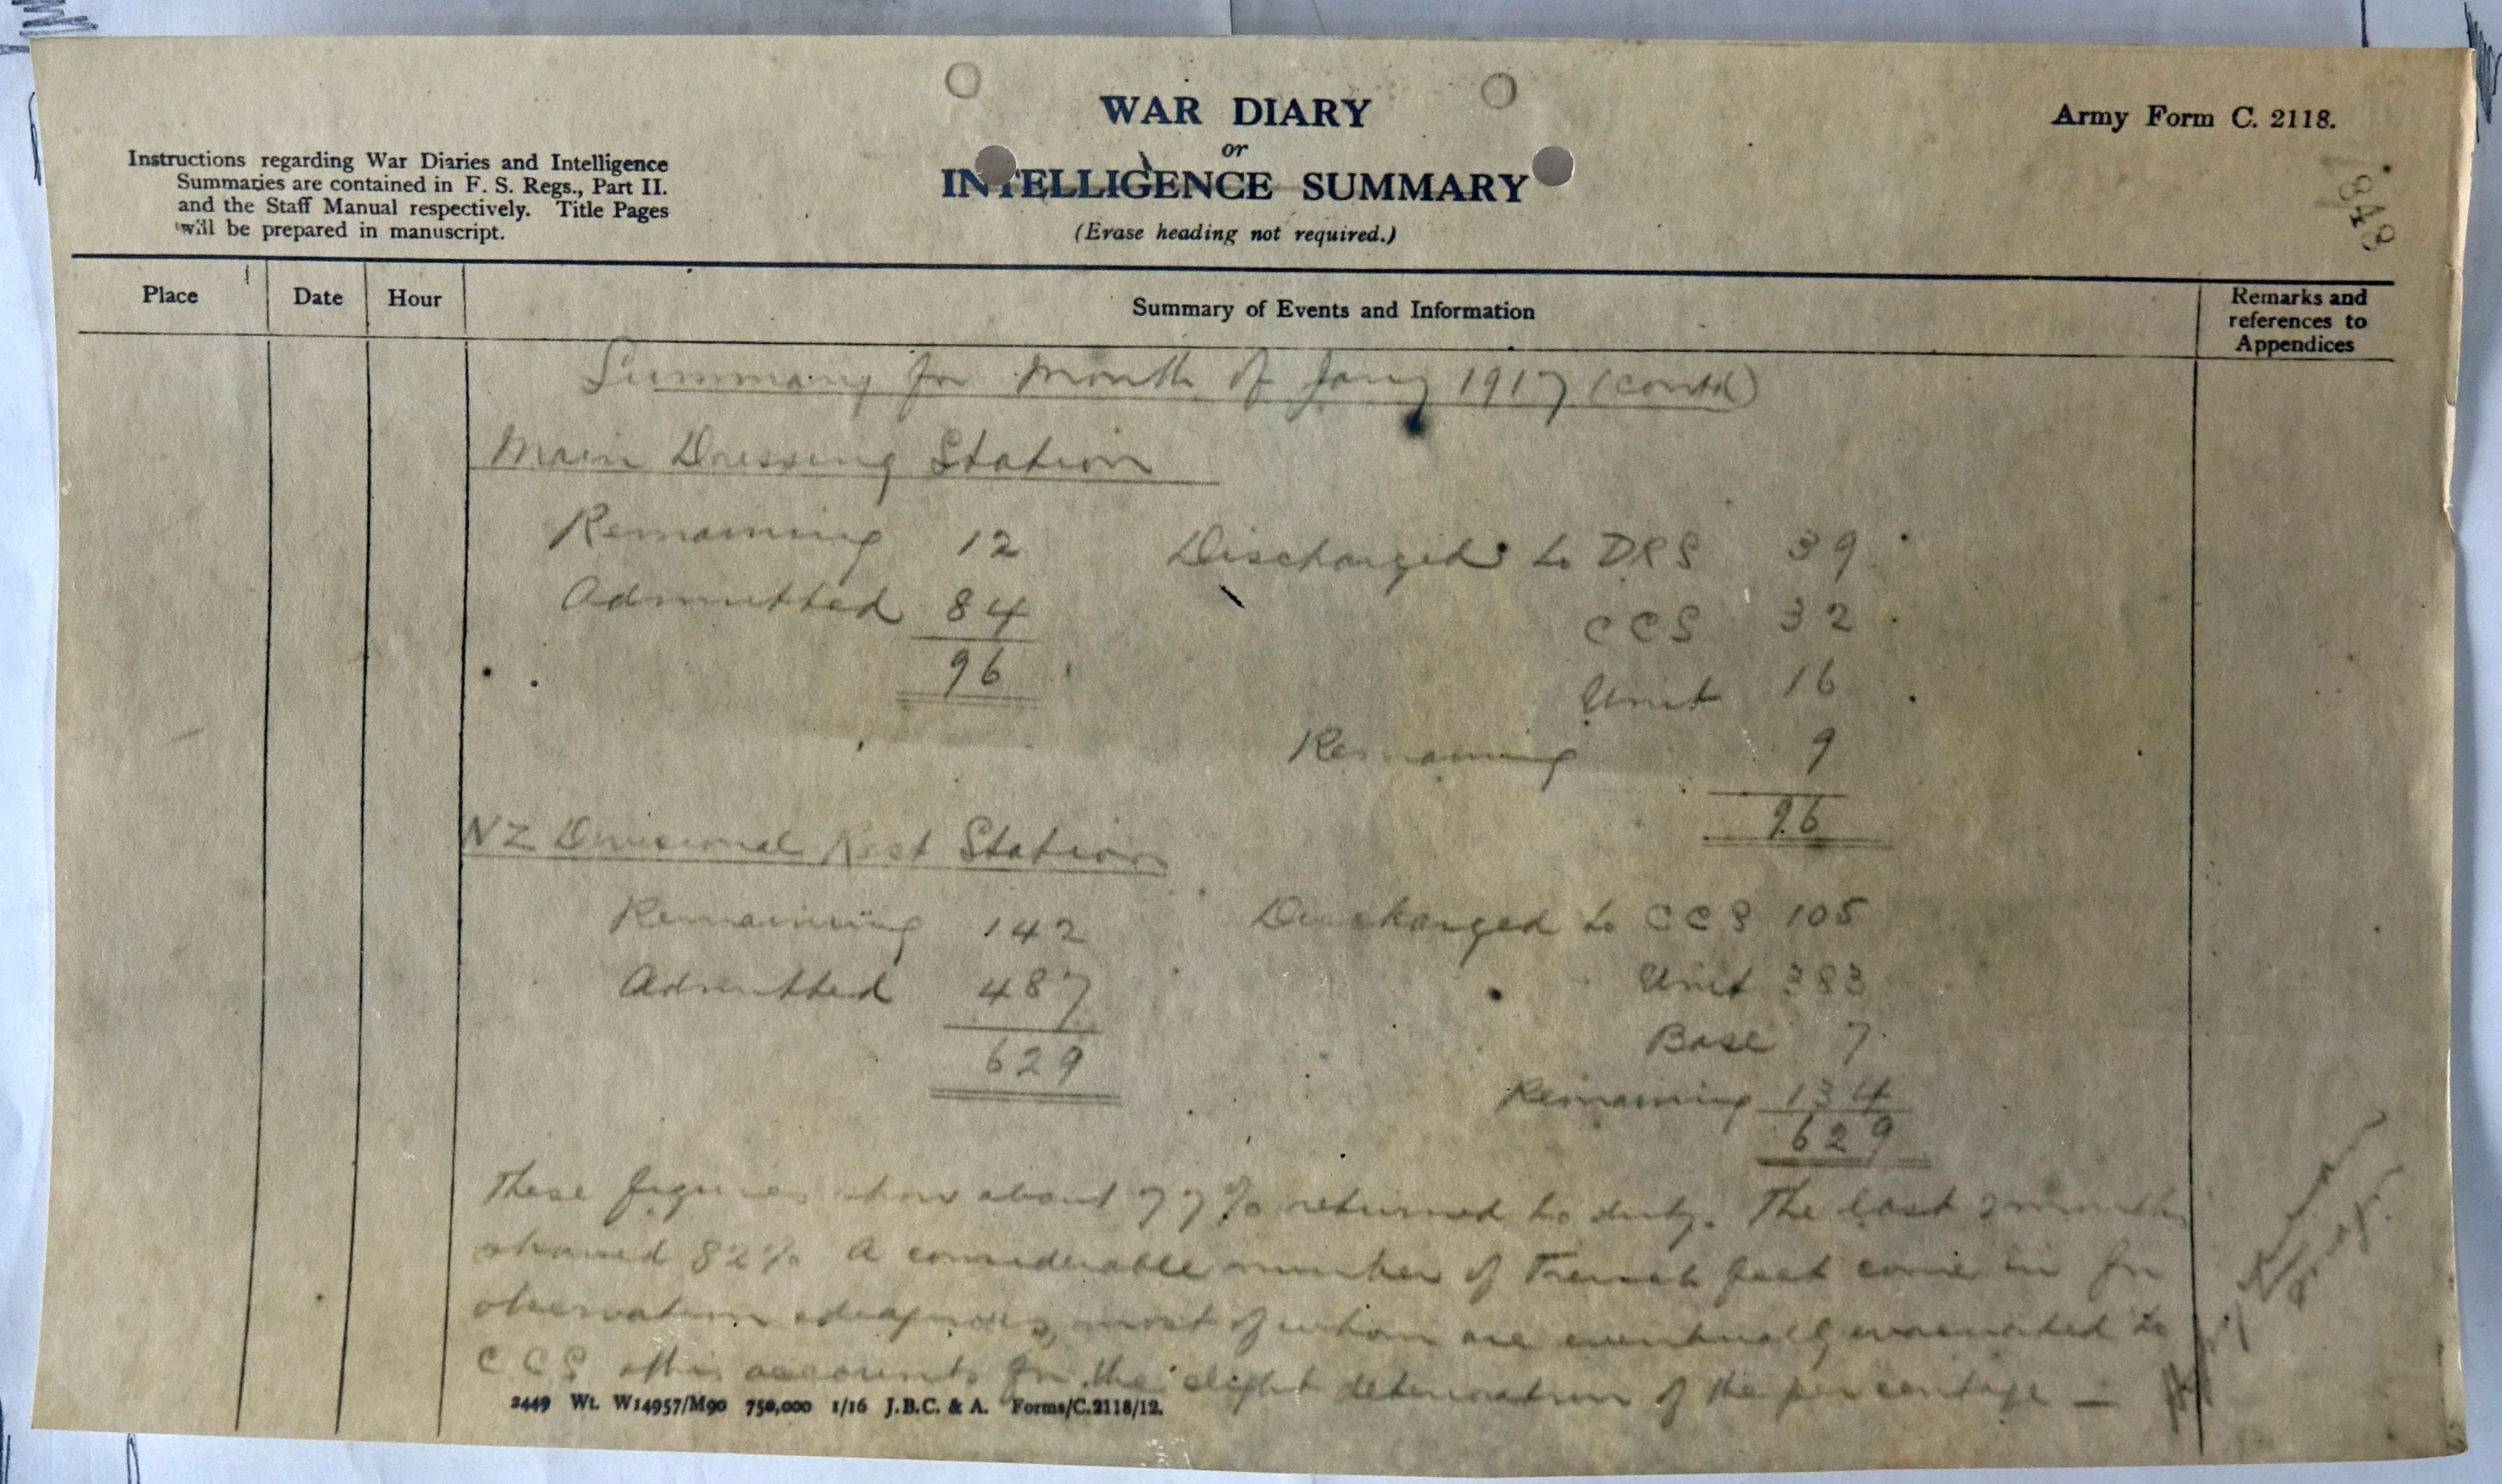 WAR DIARY
or
INTELLIGENCE SUMMARY
(Erase heading not required.)
Army Form C. 2118.
Instructions regarding War Diaries and Intelligence
Summaries are contained in F. S. Regs., Part II.
and the Staff Manual respectively. Title Pages
will be prepared in manuscript.
Place Date Hour Summary of Events and Information Remarks and
references to
Appendices
Summary for Month of Jany 1917 (contd)
Main Dressing Station
Remaining 12 Discharged to DRS 39
Admitted 84 CCS 32
96 Unit 16
Remaining 9
96
NZ Divisional Rest Station
Remaining 142 Discharged to CCS 105
Admitted 487 Unit 383
629 Base 7
Remaining 134
629
These figures show about 77% returned to duty. The last 2 months
showed 82% A considerable number of Trench feet come in for
observation & diagnosis, most of whom are eventually evacuated to
CCS & this accounts for the slight deterioration of the percentage —
2449 Wt. W14957/M90 750,000 1/16 J.B.C. & A. Forms/C.2118/12.